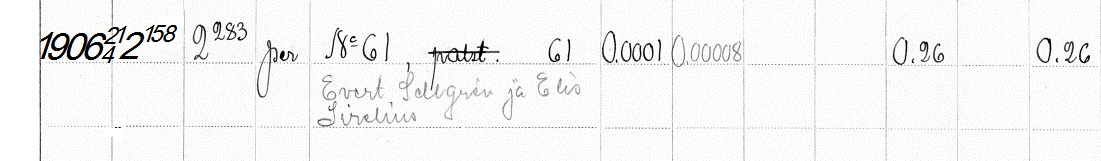 1906 21/4 2 158 2 283 per № 61, patst. 61 0.0001 0.00008 0.26 0.26
Evert Sellgrén ja Elis
Sirelius